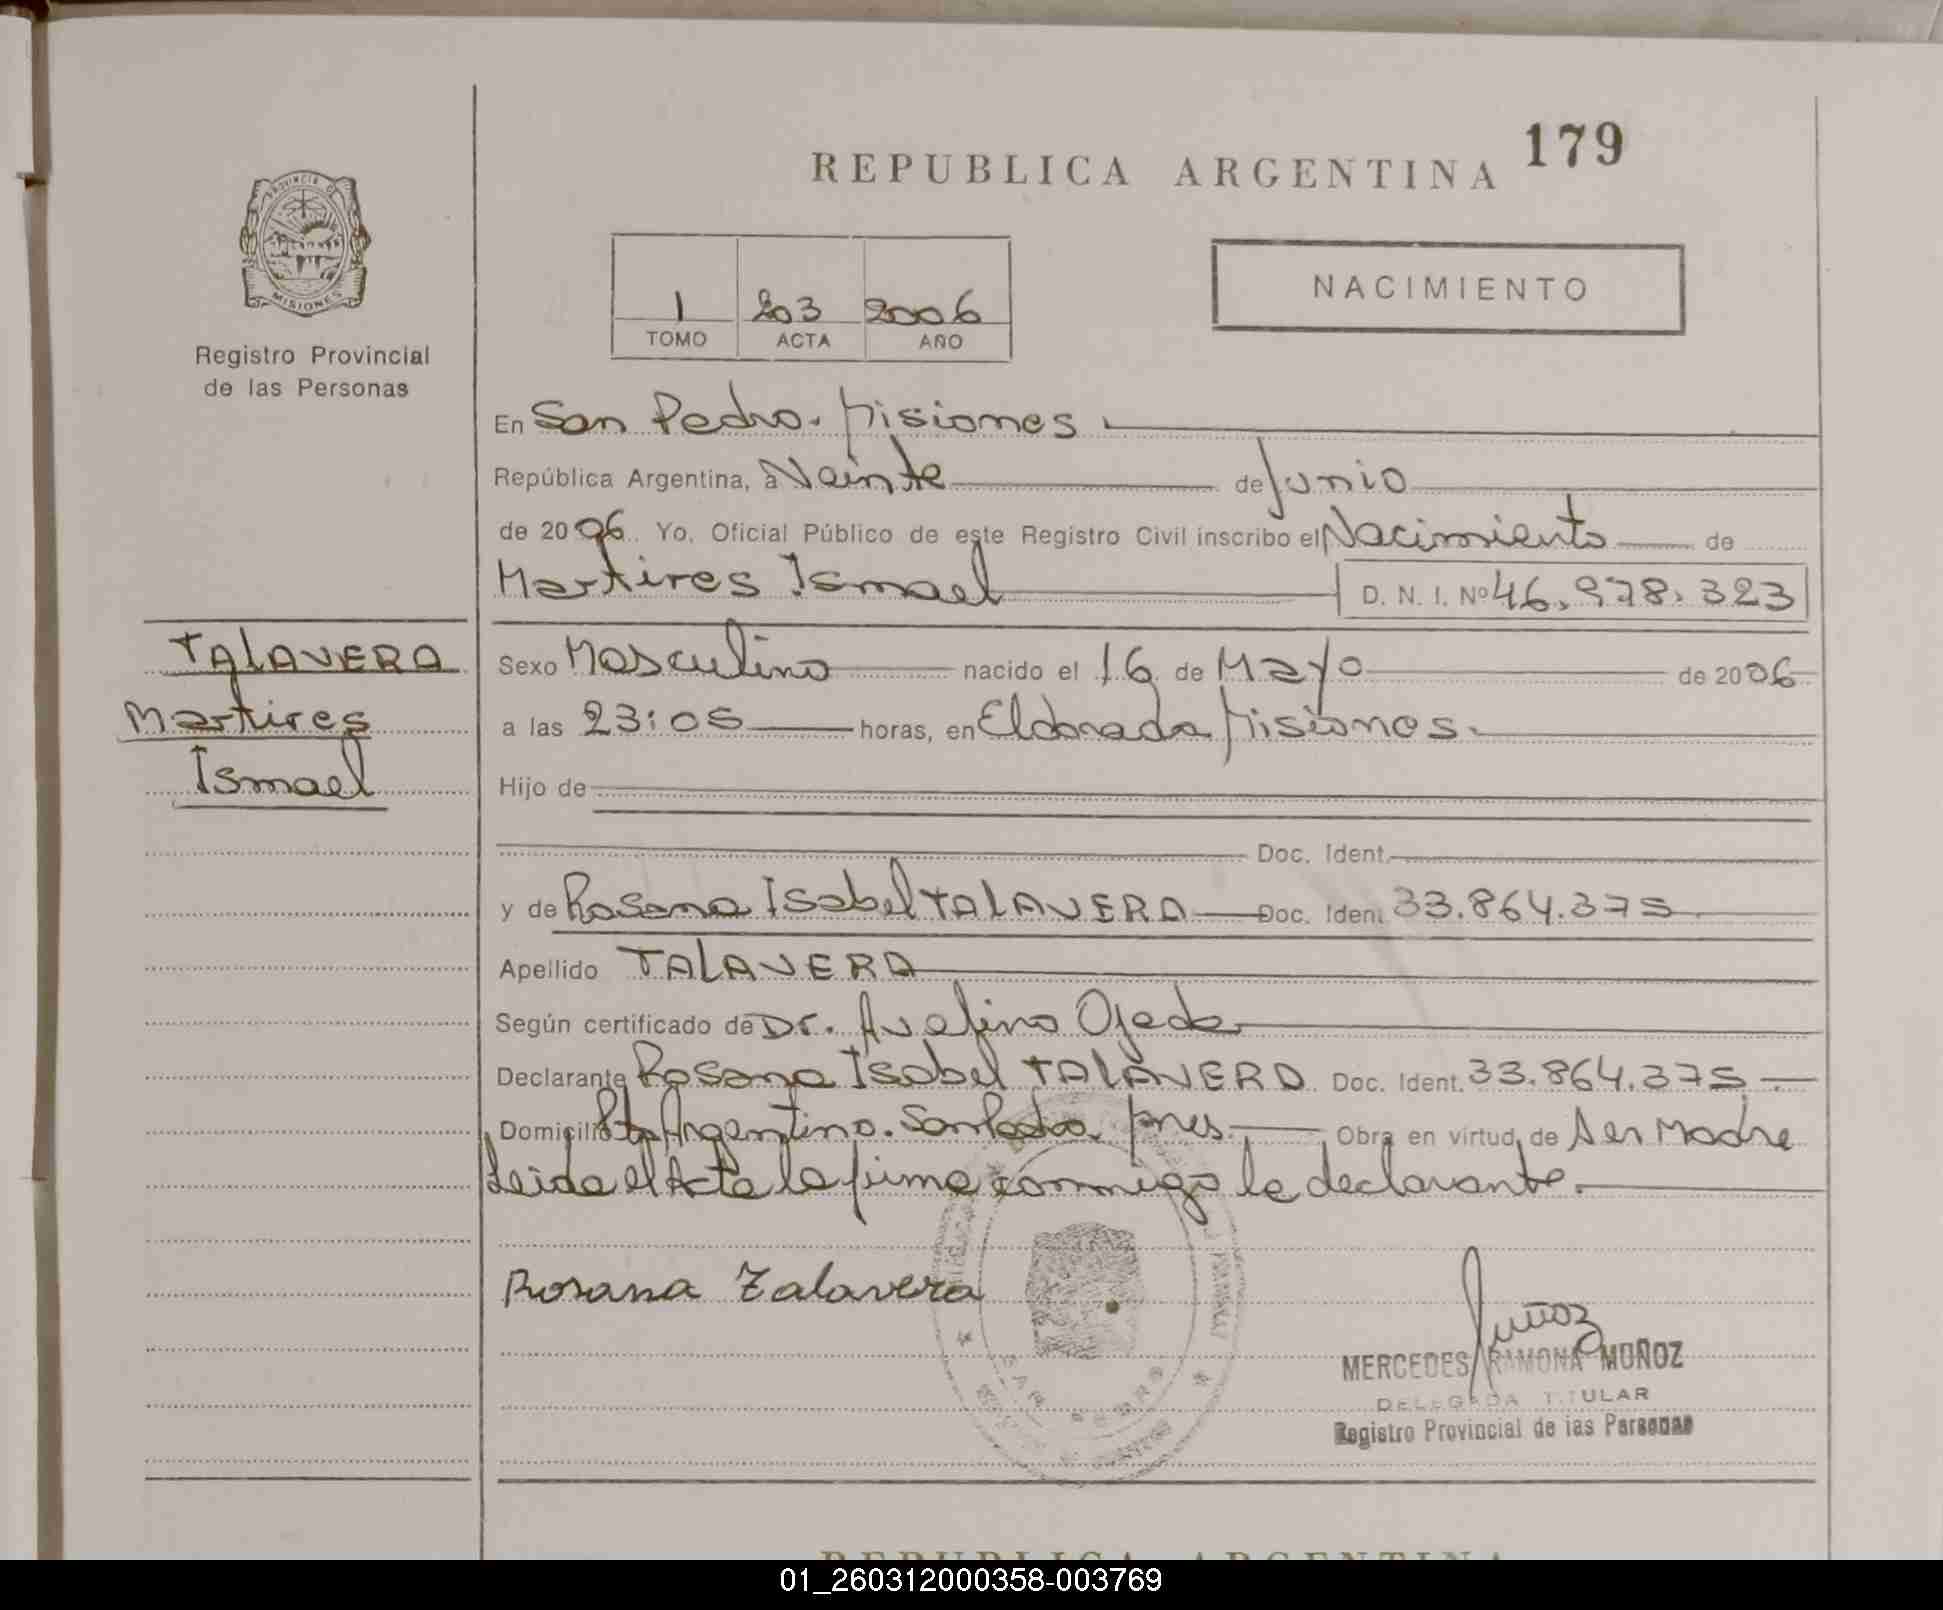 REPUBLICA ARGENTINA 179
PROVINCIA DE
MISIONES
Registro Provincial
de las Personas
1 203 2006
TOMO ACTA AÑO
NACIMIENTO
En San Pedro. Misiones
República Argentina, a Veinte de Junio
de 2006 Yo, Oficial Público de este Registro Civil inscribo el Nacimiento de
Martires Ismael D. N. I. Nº 46.978.323
TALAVERA
Martires
Ismael
Sexo Masculino nacido el 16 de Mayo de 2006
a las 23:05 horas, en Eldorado Misiones.
Hijo de
Doc. Ident.
y de Rosana Isabel TALAVERA Doc. Ident. 33.864.375
Apellido TALAVERA
Según certificado de Dr. Avelino Ojeda
Declarante Rosana Isabel TALAVERA Doc. Ident. 33.864.375
Domicilio Pto Argentino. San Pedro. Mnes. Obra en virtud de Ser Madre
Leida el Acta la firma conmigo la declarante.
Rosana Talavera
Muñoz
MERCEDES RAMONA MUÑOZ
DELEGADA TITULAR
Registro Provincial de las Personas
SAN PEDRO
REPUBLICA ARGENTINA
01_260312000358-003769